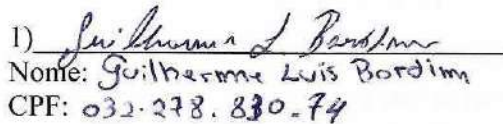 1) Guilherme L Bordim
Nome: Guilherme Luis Bordim
CPF: 032.278.830-74